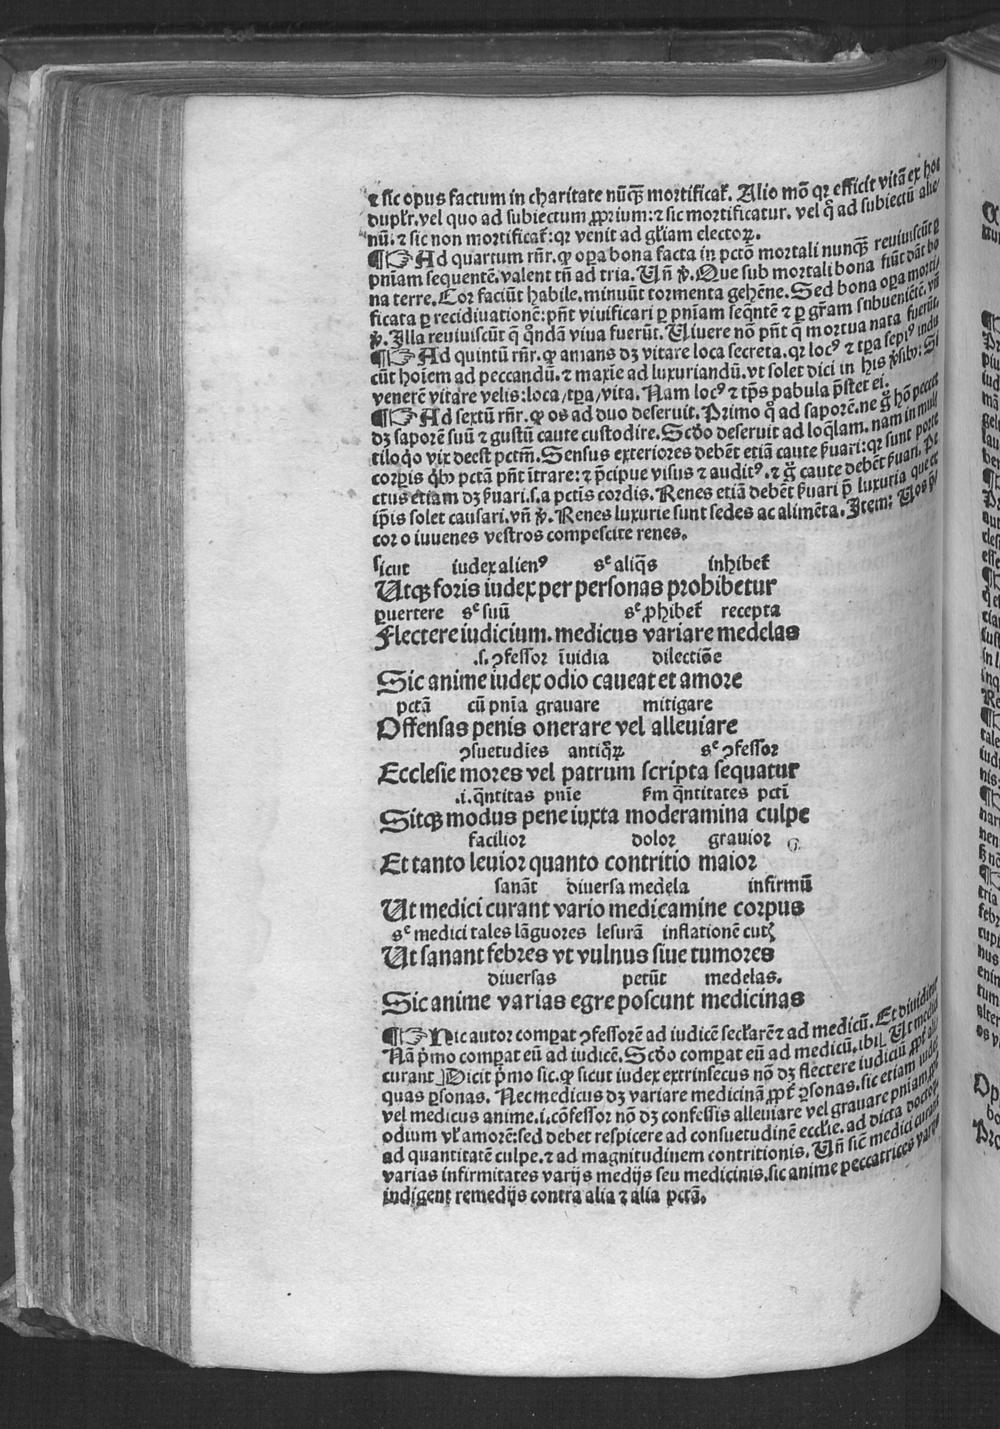 ⁊ sic opus factum in charitate nūq̄ꝫ mortificat̄. Alio mō qꝛ efficit vitā ex hoc
duplr̄. vel quo ad subiectum ꝓprium: ⁊ sic mortificatur. vel q̄ ad subiectū alie/
nū. ⁊ sic non mortificat̄: qꝛ venit ad gl̄iam electoꝝ.
¶ ☞ Ad quartum rn̄r. ꝙ oꝑa bona facta in pctō mortali nunqꝫ̄ reuiuiscūt ꝑ
pn̄iam sequentē. valent tn̄ ad tria. Un̄ v̄. Que sub mortali bona fiūt dāt bo
na terre. Cor faciūt habile. minuūt tormenta gehēne. Sed bona oꝑa morti/
ficata ꝑ recidiuationē: pn̄t viuificari ꝑ pn̄iam seq̄ntē ⁊ ꝑ gr̄am subueniētē. vn̄
v̄. Illa reuiuiscūt q̄ q̄ondā viua fuerūt. Uiuere nō pn̄t q̄ mortua nata fuerūt.
¶ ☞ Ad quintū rn̄r. ꝙ amans dꝫ vitare loca secreta. qꝛ locꝰ ⁊ tꝑa sepiꝰ indu
cūt hoīem ad peccandū. ⁊ maxīe ad luxuriandū. vt solet dici in his v̄sibꝰ: Si
venerē vitare velis: loca/tꝑa/vita. Nam locꝰ ⁊ tp̄s pabula p̄stet ei.
¶ ☞ Ad sextū rn̄r. ꝙ os ad duo deseruit. Primo q̄ ad saporē. ne g̊ hō peccet
dꝫ saporē suū ⁊ gustū caute custodire. Scd̄o deseruit ad loq̄lam. nam in mul/
tiloq̄o vix deest pctm̄. Sensus exteriores debēt etiā caute ẜuari: qꝛ sunt porte
corꝑis q̄bꝰ pctā pn̄t īntrare: ⁊ p̄cipue visus ⁊ auditꝰ. ⁊ g̊ caute debēt ẜuari. Pe
ctus etiam dꝫ ẜuari. s. a pctis cordis. Renes etiā debēt ẜuari p̄ luxuria que ex
ip̄is solet causari. vn̄ v̄. Renes luxurie sunt sedes ac alimēta. Item: Uos p̄/
cor o iuuenes vestros compescite renes.
sicut iudex alienꝰ sᶜ aliq̄s inhibet̄
Utqꝫ foris iudex per personas prohibetur
ꝑuertere sᶜ suū sᶜ ꝓhibet̄ recepta
Flectere iudicium. medicus variare medelas
.s. ꝯfessor īuidia dilectiōe
Sic anime iudex odio caueat et amore
pctā cū pn̄ia grauare mitigare
Offensas penis onerare vel alleuiare
ꝯsuetudies antiq̄oꝝ sᶜ ꝯfessor
Ecclesie mores vel patrum scripta sequatur
.i. q̄ntitas pn̄ie ẜm q̄ntitates pcti
Sitqꝫ modus pene iuxta moderamina culpe
facilior dolor grauior
Et tanto leuior quanto contritio maior
sanāt diuersa medela infirmū
Ut medici curant vario medicamine corpus
sᶜ medici tales lāguores lesurā inflationē cutꝭ
Ut sanant febres vt vulnus siue tumores
diuersas petūt medelas.
Sic anime varias egre poscunt medicinas
¶ ☞ Hic autor comꝑat ꝯfessorē ad iudicē secl̄arē ⁊ ad medicū. Et diuiditur
Nā p̄mo comꝑat eū ad iudicē. Scd̄o comꝑat eū ad medicū. ibi. Ut medici
curant⹁ Dicit p̄mo sic. ꝙ sicut iudex extrinsecus nō dꝫ flectere iudiciū ꝓpt̄ ali/
quas ꝑsonas. Nec medicus dꝫ variare medicinā ꝓpt̄ ꝑsonas. sic etiam iudex
vel medicus anime. i. cōfessor nō dꝫ confessis alleuiare vel grauare pn̄iam ꝓpt̄
odium vl̄ amorē: sed debet respicere ad consuetudinē eccl̄ie. ad dicta doctoꝝ.
ad quantitatē culpe. ⁊ ad magnitudinem contritionis. Un̄ sicē medici curant
varias infirmitates varijs medijs seu medicinis. sic anime peccatrices varijs
indigent remedijs contra alia ⁊ alia pctā.